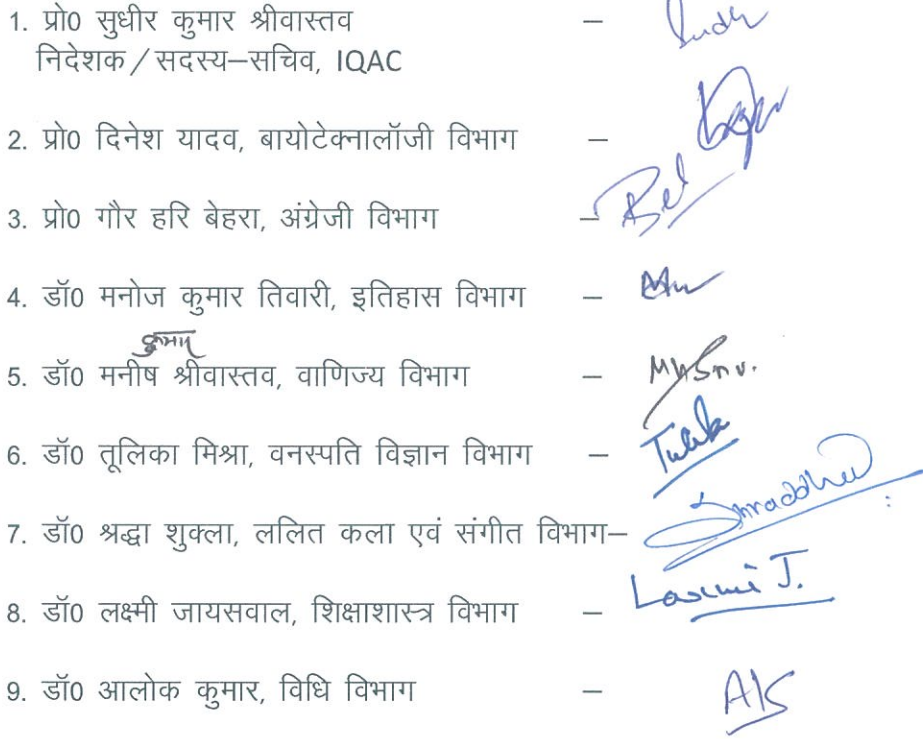 1. प्रो0 सुधीर कुमार श्रीवास्तव –
निदेशक / सदस्य–सचिव, IQAC
2. प्रो0 दिनेश यादव, बायोटेक्नालॉजी विभाग –
3. प्रो0 गौर हरि बेहरा, अंग्रेजी विभाग –
4. डॉ0 मनोज कुमार तिवारी, इतिहास विभाग –
कुमार
5. डॉ0 मनीष श्रीवास्तव, वाणिज्य विभाग –
6. डॉ0 तूलिका मिश्रा, वनस्पति विज्ञान विभाग –
7. डॉ0 श्रद्धा शुक्ला, ललित कला एवं संगीत विभाग– Shraddha
8. डॉ0 लक्ष्मी जायसवाल, शिक्षाशास्त्र विभाग – Laxmi J.
9. डॉ0 आलोक कुमार, विधि विभाग –